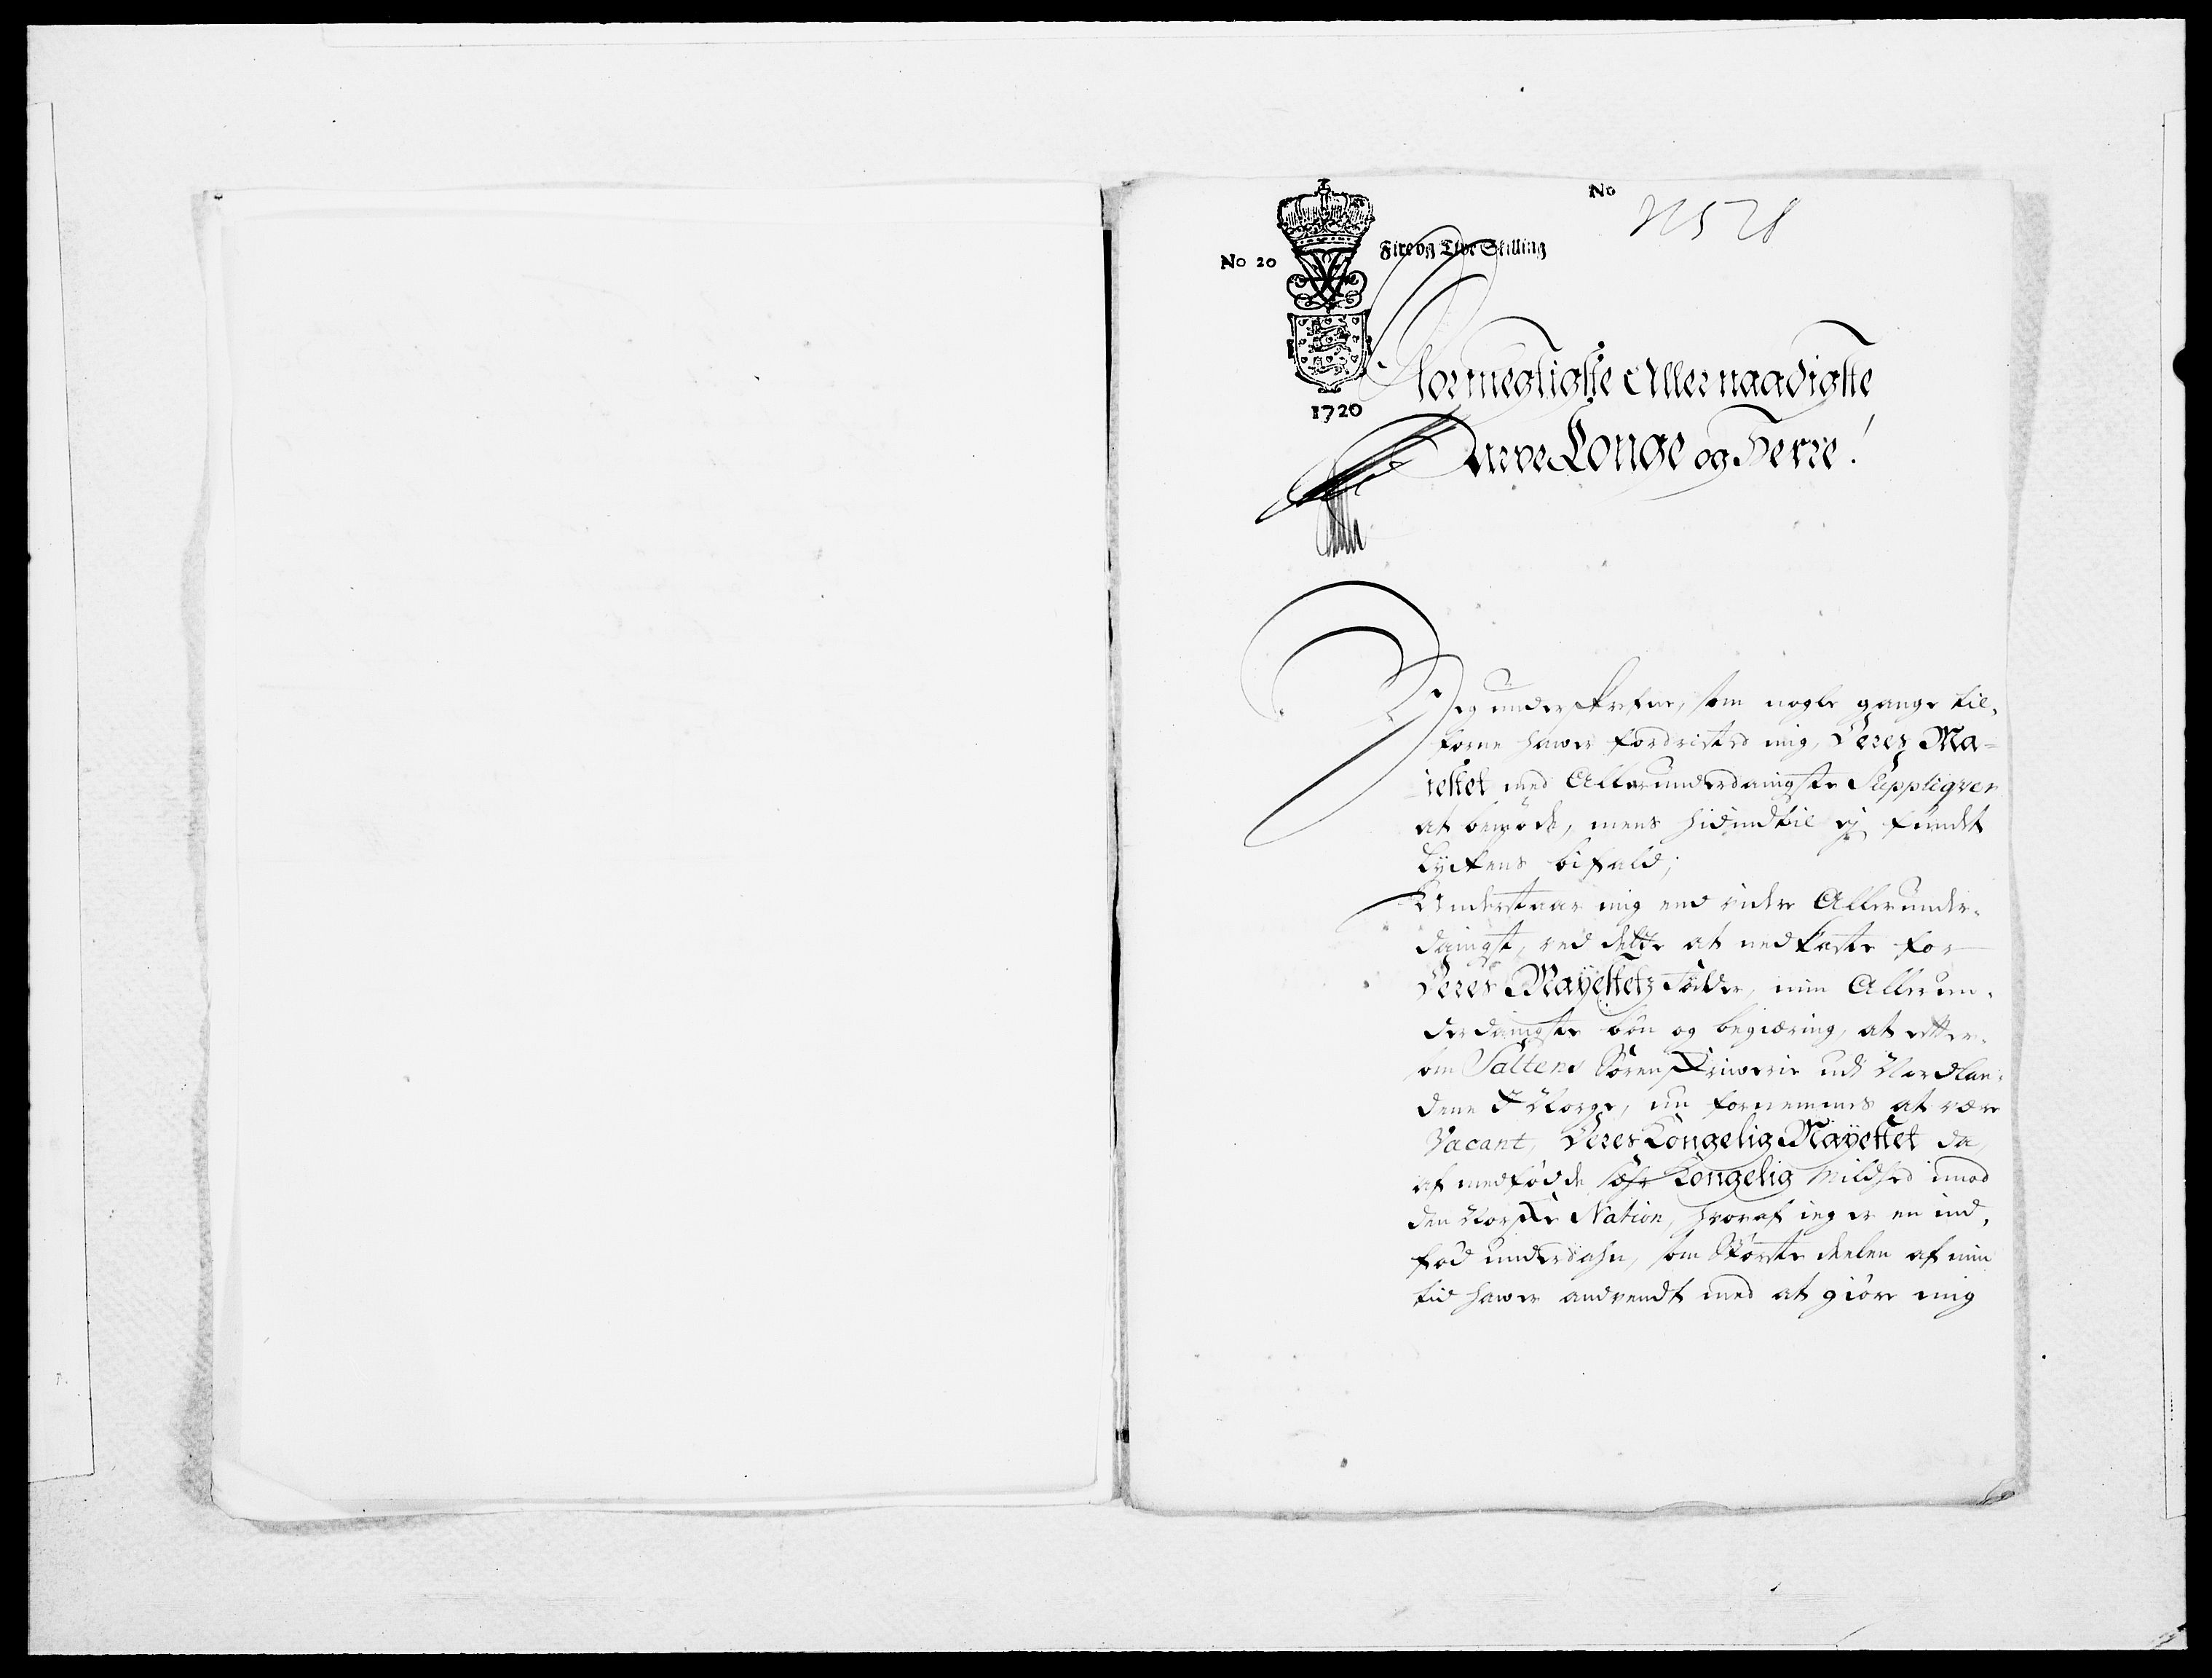 No
No 20
Fire og Tive Skilling
1720
Stormegtigste Allernaadigste
Arve Konge og Herre!
Jeg underskrefne, som nogle gange til-
forne hawer fordristed mig, Deres Ma-
iestet med Allerunderdanigste Suppliqver
at bemøde, mens hidindtil ej fundet
Lyckens bifald;
Understaar mig end videre Allerunder-
danigst, ved dette at nedkaste for
Deres Mayestetz Fødder, min Allerun-
derdanigste bøn og begiæring, at efter-
som Saltens Sorenskriwerie udi Nordlan-
dene I Norge, nu fornemmes at være
Vacant, Deres Kongelig Mayestet da,
af medfødde høye Kongelig Mildhed imod
den Norske Nation, hvoraf ieg er en ind-
fød undersahn, som Største deelen af min
tid hawer andvendt med at giøre mig